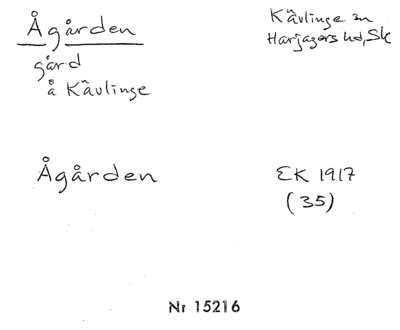 Ågården
gård
å Kävlinge
Kävlinge sn
Harjagers hd, Sk
Ågården
EK 1917
(35)
Nr 15216